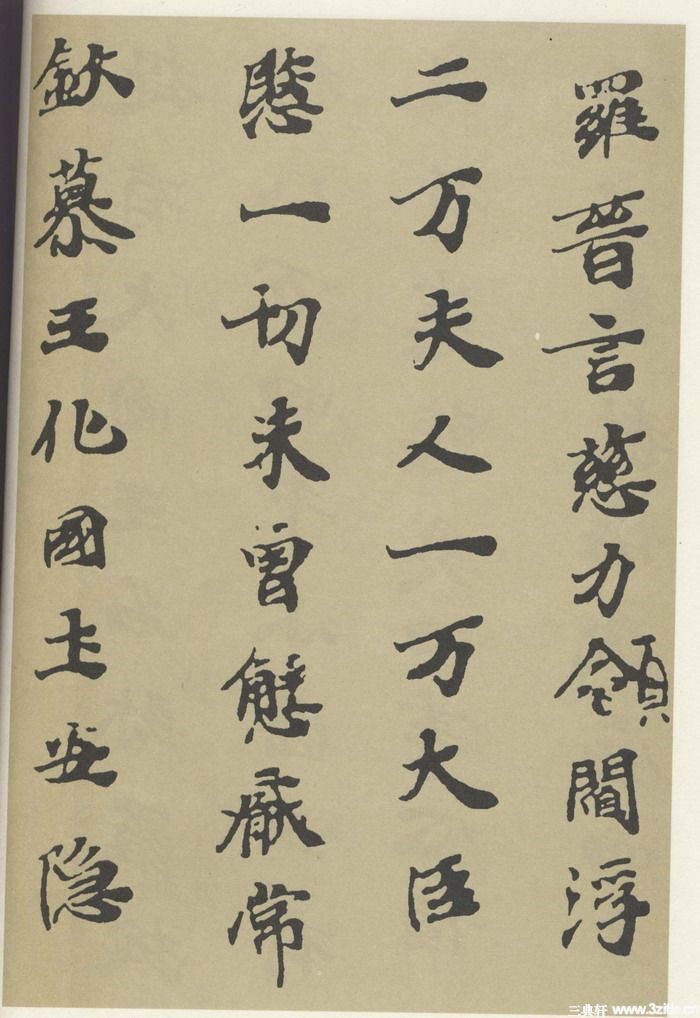 羅晋言慈力領閻浮
二万夫人一万大臣
愍一切未曾懈厭常
欽慕王化國土安隐
三典轩 www.3zitie.cn